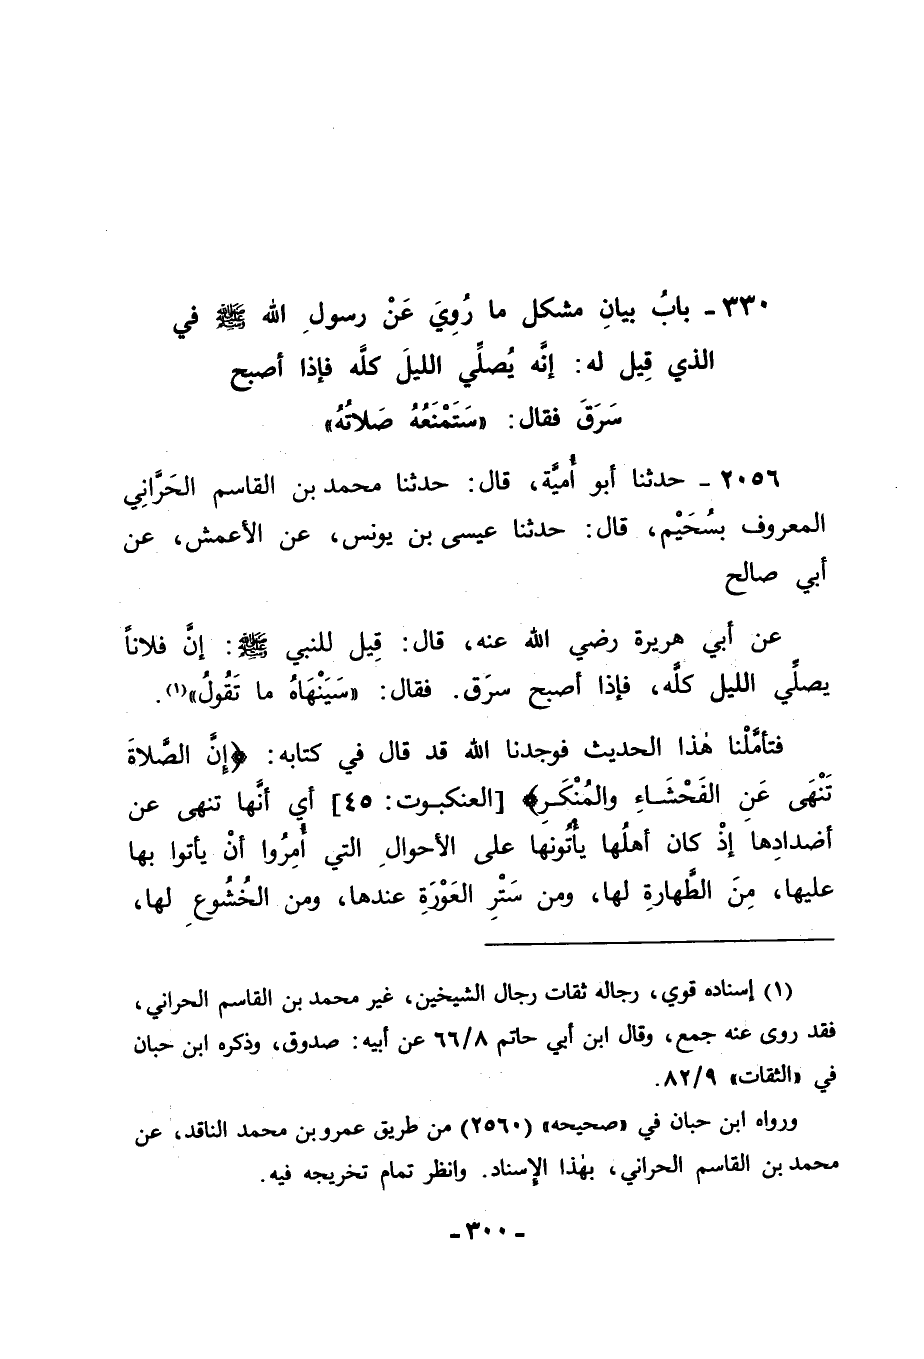 ٣٣٠ - بابُ بيانِ مشكل ما رُوِيَ عَنْ رسولِ الله ﷺ في
الذي قِيل له: إنَّه يُصلِّي الليلَ كلَّه فإذا أصبح
سَرَقَ فقال: «سَتَمْنَعُهُ صَلاتُهُ»
٢٠٥٦ - حدثنا أبو أُميَّة، قال: حدثنا محمد بن القاسم الحَرَّانِي
المعروف بسُحَيْم، قال: حدثنا عيسى بن يونس، عن الأعمش، عن
أبي صالح
عن أبي هريرة رضي الله عنه، قال: قِيل للنبي ﷺ: إنَّ فلاناً
يصلِّي الليل كلَّه، فإذا أصبح سرَق. فقال: «سَيَنْهَاهُ ما تَقُولُ»(١).
فتأمَّلْنا هٰذا الحديث فوجدنا الله قد قال في كتابه: ﴿إِنَّ الصَّلاةَ
تَنْهَى عَنِ الفَحْشَاءِ والمُنْكَرِ﴾ [العنكبوت: ٤٥] أي أنَّها تنهى عن
أضدادِها إذْ كان أهلُها يأتُونها على الأحوالِ التي أُمِرُوا أنْ يأتوا بها
عليها، مِنَ الطَّهارةِ لها، ومن سَتْرِ العَوْرَةِ عندها، ومن الخُشُوعِ لها،
(١) إسناده قوي، رجاله ثقات رجال الشيخين، غير محمد بن القاسم الحراني،
فقد روى عنه جمع، وقال ابن أبي حاتم ٦٦/٨ عن أبيه: صدوق، وذكره ابن حبان
في «الثقات» ٨٢/٩.
ورواه ابن حبان في «صحيحه» (٢٥٦٠) من طريق عمرو بن محمد الناقد، عن
محمد بن القاسم الحراني، بهٰذا الإِسناد. وانظر تمام تخريجه فيه.
- ٣٠٠ -